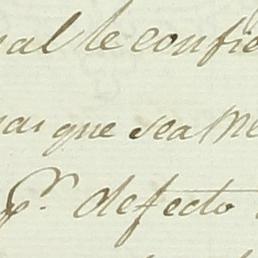 ual le confie
mas que sea Me
pr. defecto